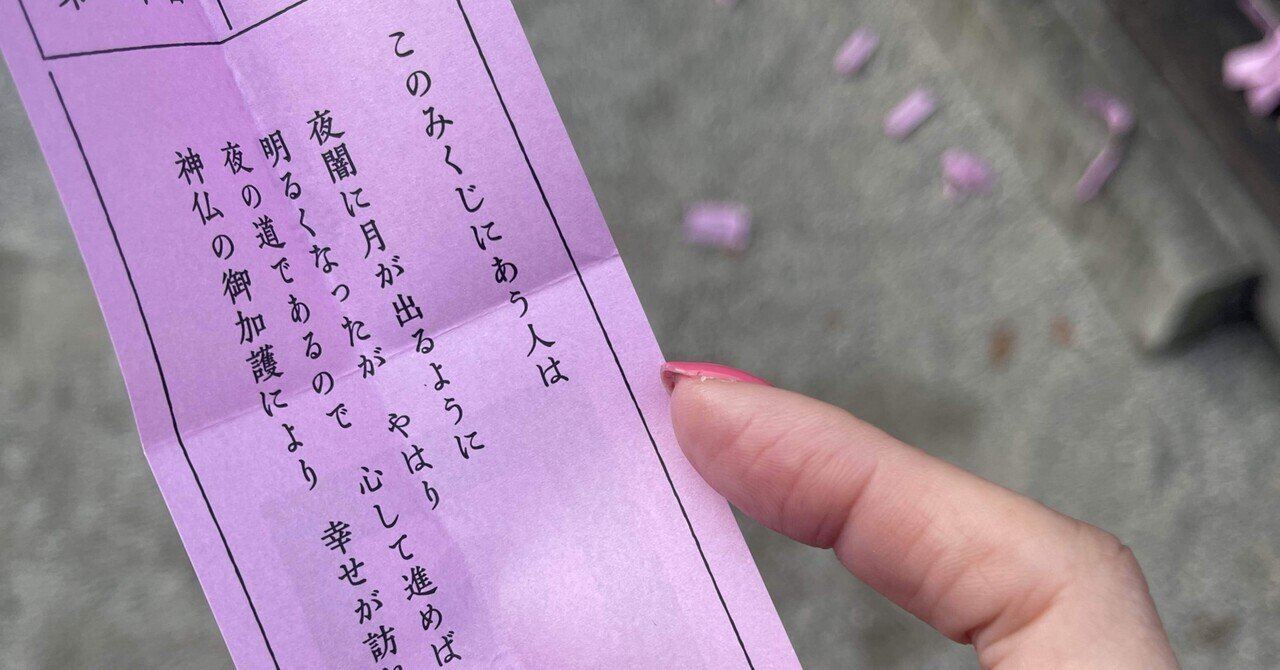 このみくじにあう人は
夜闇に月が出るように
明るくなったが　やはり
夜の道であるので　心して進めば
神仏の御加護により　幸せが訪